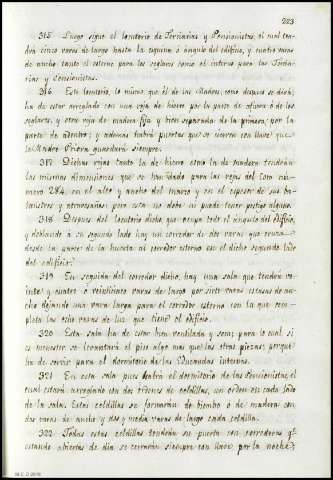 223
315 Luego sigue el locutorio de Terciarias y Pensionistas, el cual ten-
drá cinco varas de largo hasta la esquina ó ángulo del edificio, y cuatro varas
de ancho tanto el esterno para los seglares como el interno para las Tercia-
rias y Pensionistas.
316 Este locutorio, lo mismo que el de las Madres, como despues se dirá,
ha de estar arreglado con una reja de hierro por la parte de afuera ó de los
seglares, y otra reja de madera fija y bien separada de la primera, por la
parte de adentro; y ademas habrá puertas que se cierren con llave que
la Madre Priora guardará siempre.
317 Dichas rejas tanto la de hierro como la de madera tendrán
las mismas dimensiones que se han dado para las rejas del Coro nú-
mero 284, en el alto y ancho del marco y en el espesor de sus ba-
laustres y atravesaños: pero esta no debe ni puede tener postigo alguno.
318 Despues del locutorio dicho, que ocupa todo el ángulo del edificio,
y doblando á su segundo lado hay un corredor de dos varas que cruza
desde la parte de la huerta al corredor esterno en el dicho segundo lado
del edificio.
319 En seguida del corredor dicho, hay una sala que tendra ve-
inte y cuatro ó veinticinco varas de largo por siete varas escasas de an-
cho dejando una vara larga para el corredor esterno con la que com-
pleta las ocho varas de luz que tiene el edificio.
320 Esta sala ha de estar bien ventilada y seca; para lo cual si
es menester se levantará el piso algo mas que las otras piezas; porque
ha de servir para el dormitorio de las Educandas internas.
321 En esta sala pues habrá el dormitorio de las Pensionistas, el
cual estará arreglado con dos órdenes de celdillas, un orden en cada lado
de la sala. Estas celdillas se formarán de biombo ó de madera con
dos varas de ancho y dos y media varas de largo cada celdilla.
322 Todas estas celdillas tendrán su puerta con correderas qe.
estando abiertas de dia se cerrarán siempre con llave por la noche,